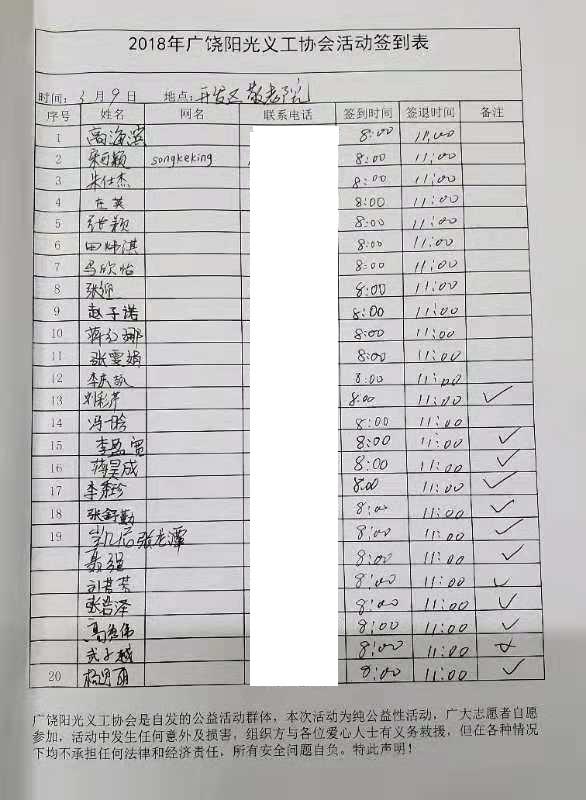 2018年广饶阳光义工协会活动签到表
时间: 3 月 9 日 地点: 开发区敬老院
序号 姓名 网名 联系电话 签到时间 签退时间 备注
1 高海滨 8:00 11:00
2 宋可颖 songkeking 8:00 11:00
3 朱仕杰 8:00 11:00
4 8:00 11:00
5 张颖 8:00 11:00
6 田炜淇 8:00 11:00
7 马欣怡 8:00 11:00
8 张迎 8:00 11:00
9 赵子诺 8:00 11:00
10 蒋幻娜 8:00 11:00
11 张雯娟 8:00 11:00
12 8:00 11:00
13 刘彩芹 8:00 11:00 ✓
14 8:00 11:00
15 李盈宽 8:00 11:00 ✓
16 蒋昊成 8:00 11:00 ✓
17 李秀珍 8:00 11:00 ✓
18 张舒勤 8:00 11:00 ✓
19 张志潭 8:00 11:00 ✓
聂强 8:00 11:00 ✓
刘芳芳 8:00 11:00 ✓
张若泽 8:00 11:00 ✓
8:00 11:00 ✓
武子越 8:00 11:00 ✓
20 8:00 11:00 ✓
广饶阳光义工协会是自发的公益活动群体，本次活动为纯公益性活动，广大志愿者自愿
参加，活动中发生任何意外及损害，组织方与各位爱心人士有义务救援，但在各种情况
下均不承担任何法律和经济责任，所有安全问题自负。特此声明！